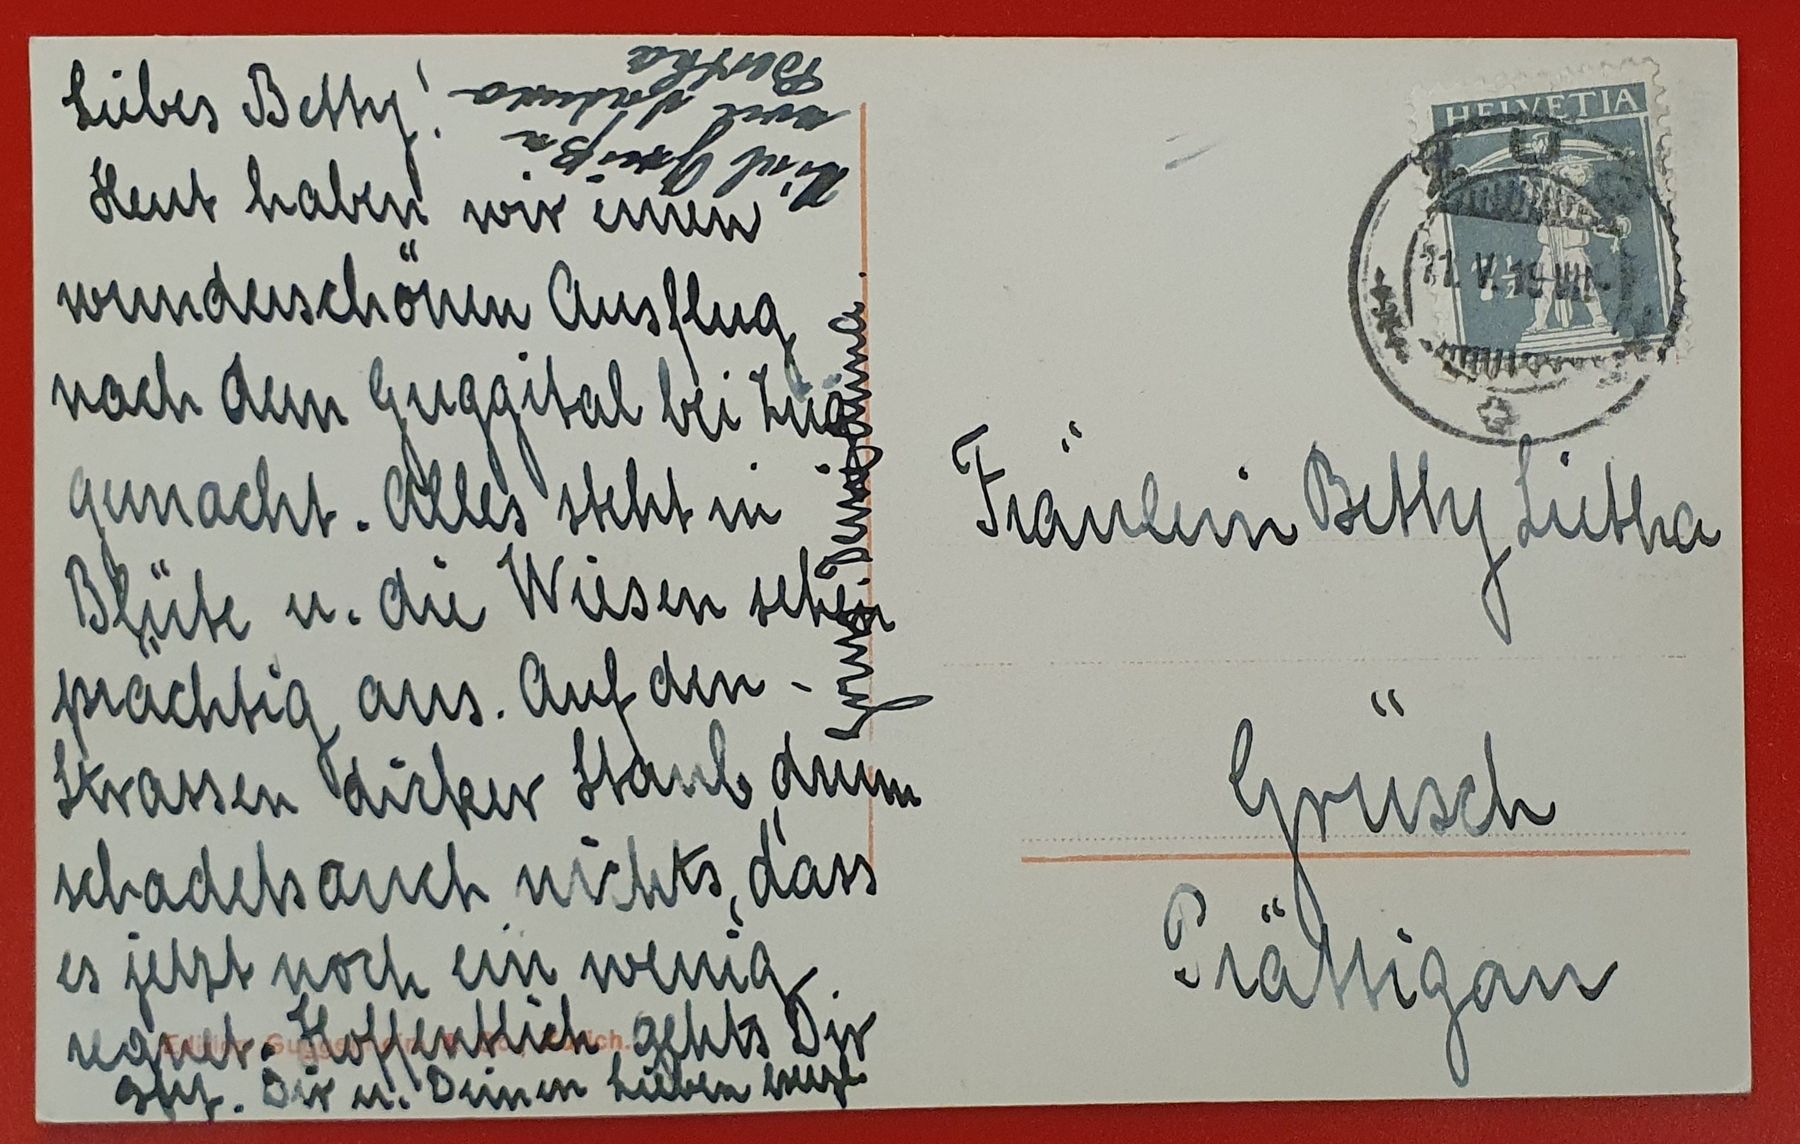 Liebes Betty!
Heut haben wir einen
wunderschönen Ausflug
nach dem Guggital bei Zug
gemacht. Alles steht in
Blüte u. die Wiesen sehen
prächtig aus. Auf den -
Strassen dicker Staub, drum
schadets auch nichts, dass
es jetzt noch ein wenig
regnet. Hoffentlich gehts Dir
gut. Dir u. Deinen Lieben
Grüße
und
Bertha
Edition Guggenheim & Co., Zürich.
HELVETIA
7½
ZUG
Fräulein Betty Lietha
Grüsch
Prättigau